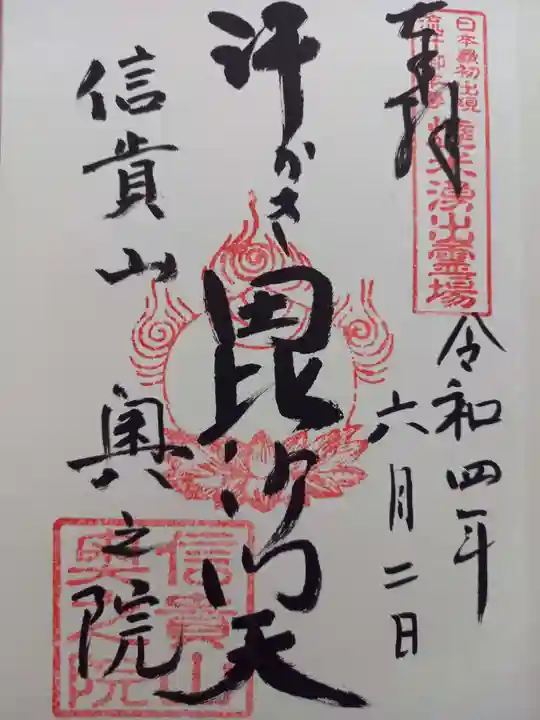 奉拝
日本最初出現
湧出霊場
令和四年
六月二日
汗かき毘沙門天
信貴山 奥之院
信貴山
奥之院